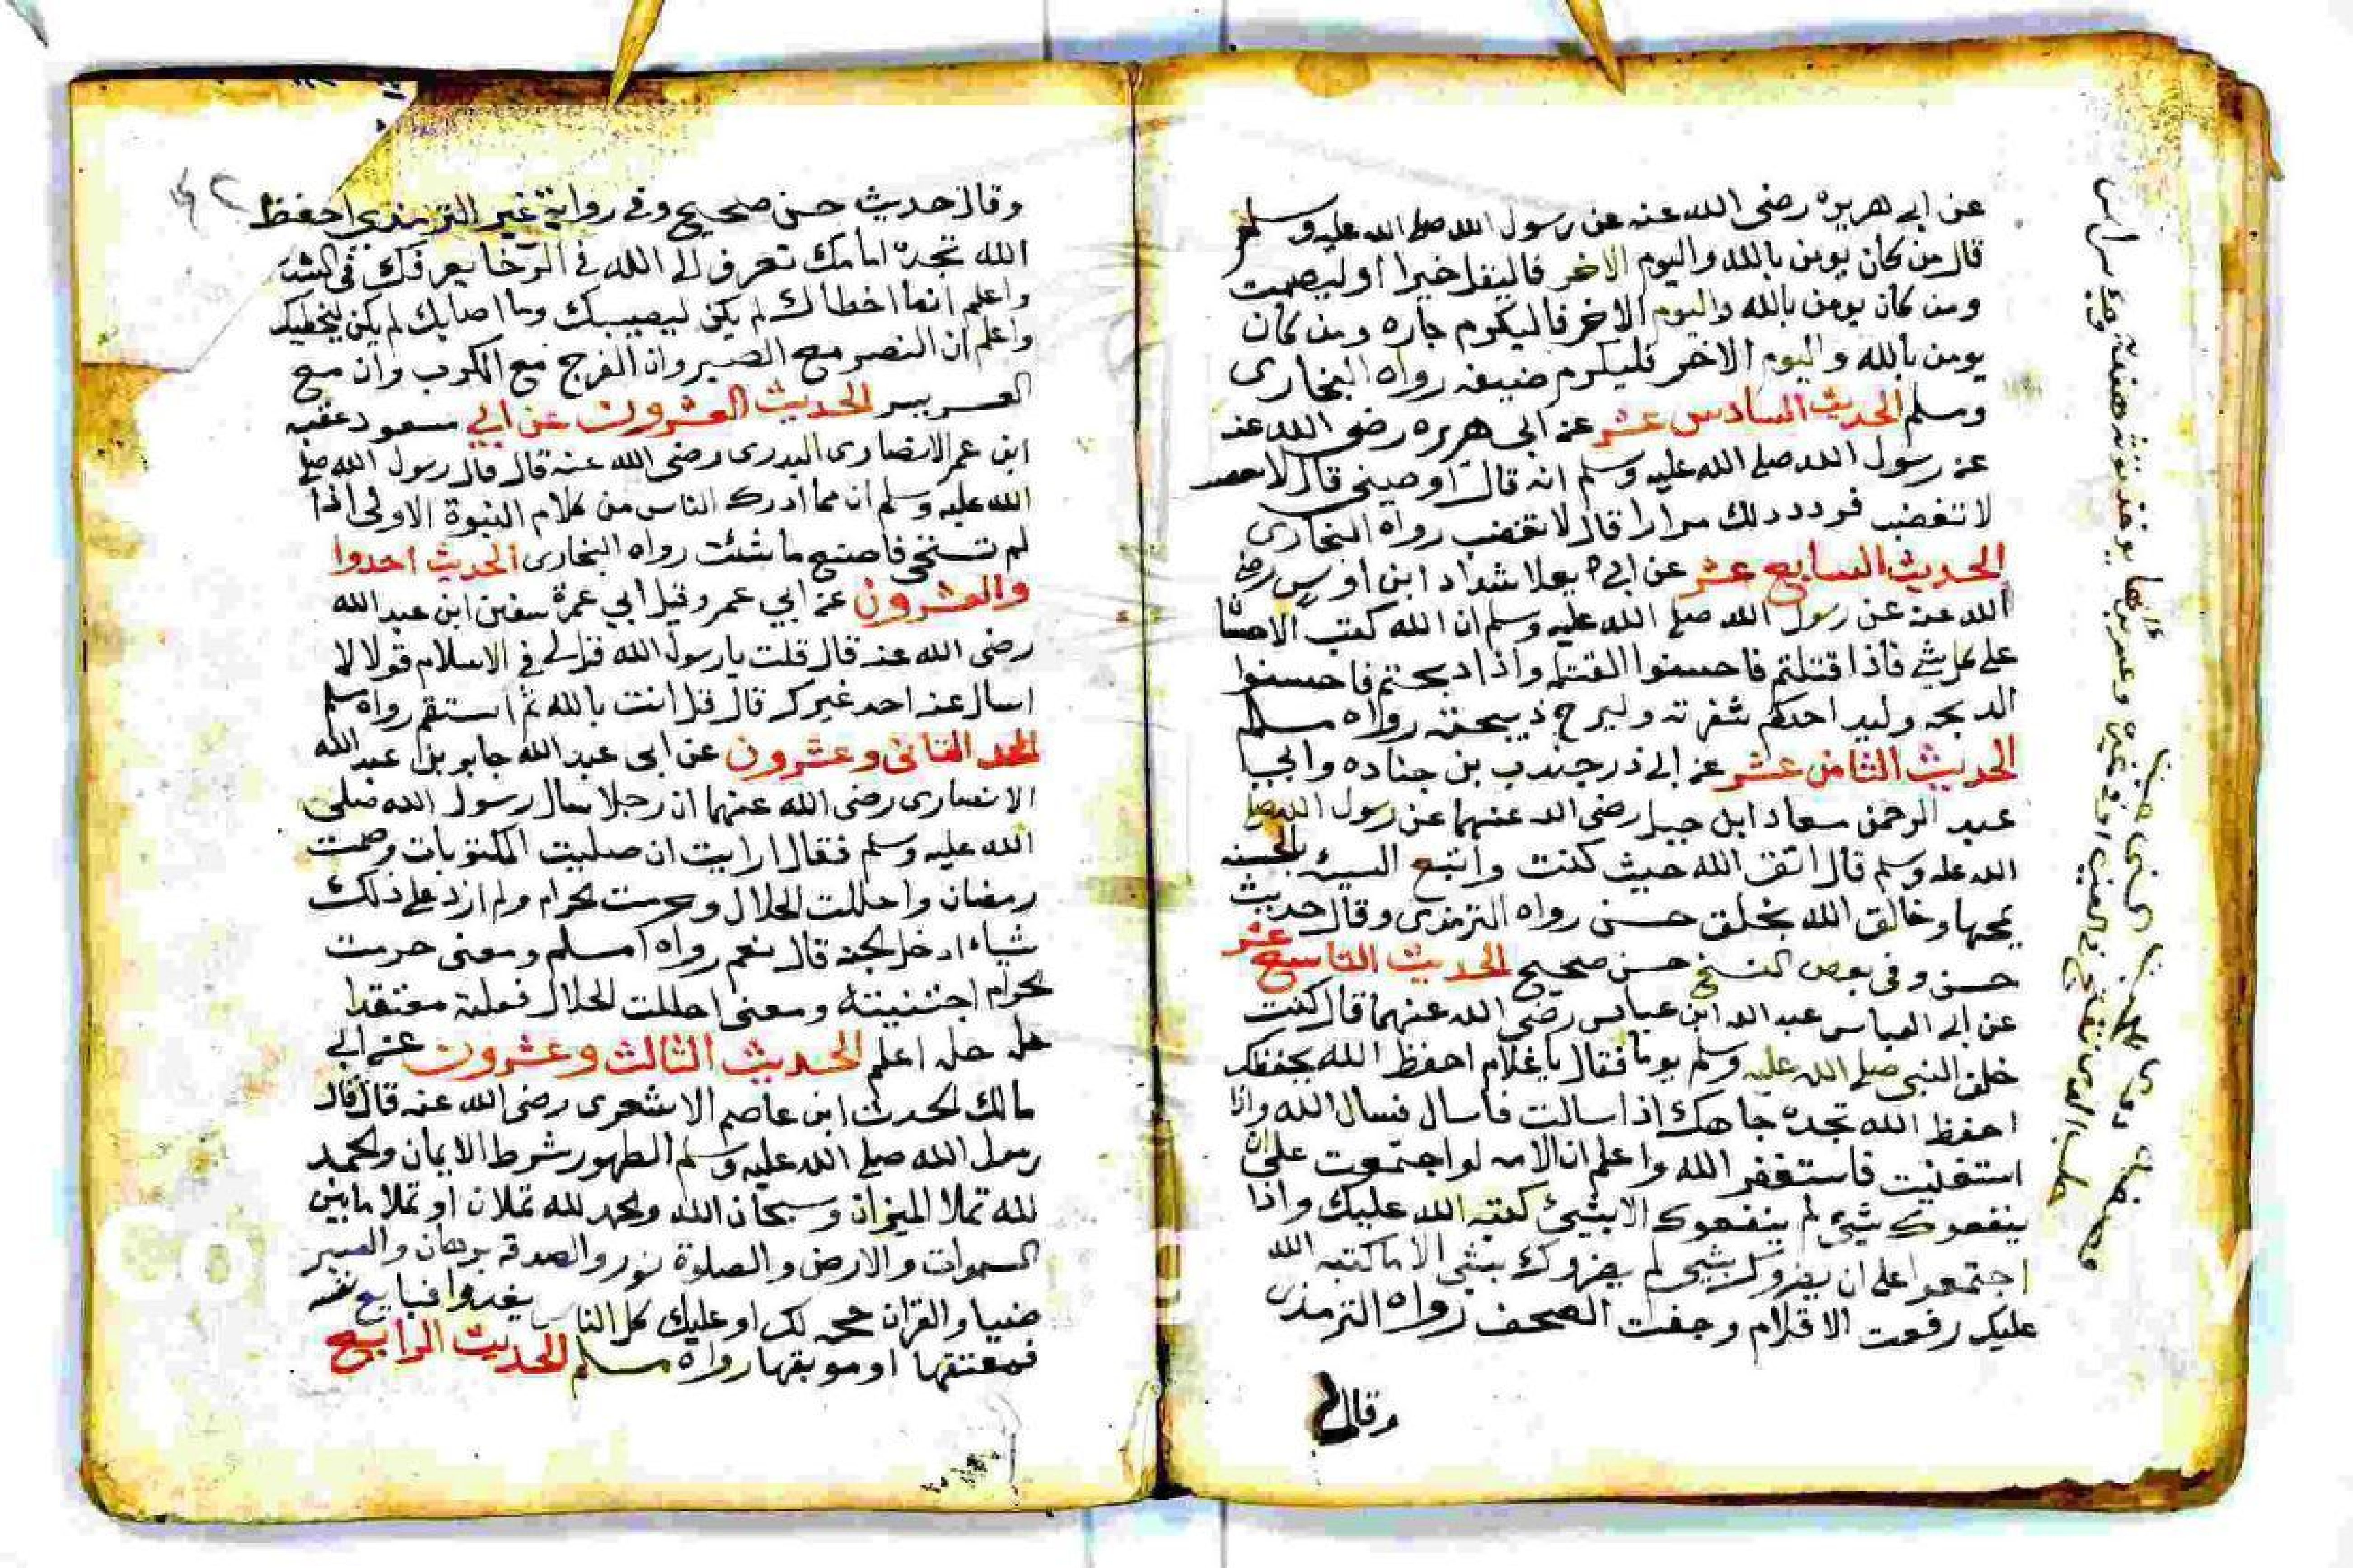 عن ابي هريره رضى الله عنه عن رسول الله صلى الله عليه وسلم
قال من كان يومن بالله واليوم الاخر فاليقل خيرا أو ليصمت
ومن كان يومن بالله واليوم الاخر فاليكرم جاره ومن كان
يومن بالله واليوم الاخر فليكرم ضيفه رواه البخارى
وسلم الحديث السادس عشر عن ابى هريره رضى الله عنه
عن رسول الله صلى الله عليه وسلم انه قال أوصينى قال
لا تغضب فردد دلك مرارا قال لا تغضب رواه البخارى
الحديث السابع عشر عن ابي يعلا شداد ابن اوس رضى
الله عنه عن رسول الله صلى الله عليه وسلم ان الله كتب الاحسا
على كل شي فاذا قتلتم فاحسنوا القتله واذا دبحتم فاحسنوا
الدبحه وليد احدكم شفرته وليرح ذبيحته رواه مسلم
الحديث الثامن عشر عن ابي ذر جندب بن جناده وابي
عبد الرحمن معاد ابن جبل رضى الله عنهما عن رسول الله صلى
الله عليه وسلم قال اتقى الله حيث كنت واتبع السيئه بالحسنه
تمحها وخالق الله بخلق حسن رواه الترمذى وقال حديث
حسن وفى بعض النسخ حسن صحيح الحديث التاسع عشر
عن ابي العباس عبد الله ابن عباس رضى الله عنهما قال كنت
خلف النبى صلى الله عليه وسلم يوما فقال يا غلام احفظ الله يحفظك
احفظ الله تجده جاهك اذا سالت فاسال فسال الله واذا
استعنيت فاستغفر الله واعلم ان الامه لو اجتمعوت على ان
ينفعوك شيئ لم ينفعوك الا بشيئ كتبه الله عليك واذا
اجتمعوا على ان يضروك بشيى لم يضروك بشي الا ما كتبه الله
عليك رفعت الاقلام وجفت الصحف رواه الترمذى
وقال
وقال حديث حسن صحيح وفى رواية غير الترمذى احفظ
الله تجده امامك تعرف الى الله في الرخا يعرفك فى الشد
واعلم انما اخطاك لم يكن ليصيبك وما اصابك لم يكن ليخطيك
واعلم ان النصر مع الصبر وان الفرج مع الكرب وان مع
العسر يسر الحديث العشرون عن ابي مسعود عقبه
ابن عمر الانصارى البدرى رضى الله عنه قال قال رسول الله صلى
الله عليه وسلم ان مما ادرك الناس من كلام النبوة الاولى اذا
لم تستحى فاصنع ما شئت رواه البخارى الحديث احدوا
والعشرون عن ابي عمر وقيل ابي عمرة سفين ابن عبد الله
رضى الله عنه قال قلت يا رسول الله قل لي في الاسلام قولا لا
اسال عنه احد غيرك قال قل امنت بالله ثم استقم رواه مسلم
الحد الثانى وعشرون عن ابى عبد الله جابر بن عبد الله
الانصارى رضى الله عنهما ان رجلا سال رسول الله صلى
الله عليه وسلم فقال ارايت ان صليت المكتوبات وصمت
رمضان واحللت الحلال وحرمت لحرام ولم ازد على ذلك
شياء ادخل لجنه قال نعم رواه امسلم ومعنى حرمت
لحرام اجتنيبته ومعنى احللت الحلال فعلته معتقدا
حله اعلم الحديث الثالث وعشرون عن ابي
مالك لحدرث ابن عاصم الاشعرى رضى الله عنه قال قال
رسول الله صلى الله عليه وسلم الطهور شرط الايمان ولحمد
لله تملا الميزان وسبحان الله ولحمد لله تملان او تملا مابين
السموات والارض والصلوة نور والصدقة برهان والصبر
ضيا والقران حجه لك او عليك كل الناس يغدوا فبايع نفسه
فمعتقها او موبقها رواه مسلم الحديث الرابع